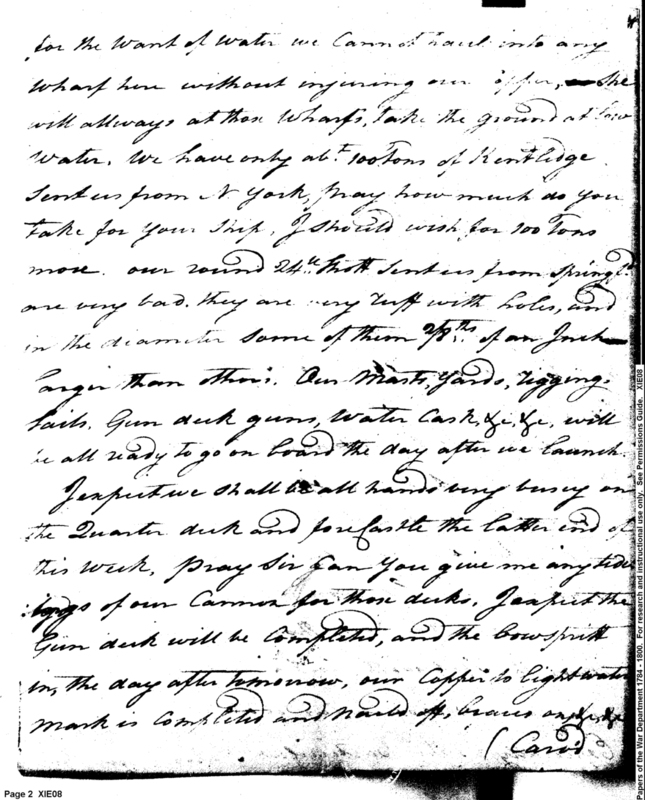 for the want of water we Cannot haul into any
wharf here without injuring our Copper, She
will allways at those Wharfs, take the ground at low
water. We have only abt. 100 Tons of Kentledge
Sent us from N York, pray how much do you
take for your Ship, I should wish for 100 Tons
more. our round 24le Shott Sent us from Springfd
are very bad. they are very ruff with holes, and
in the diameter Some of them 2/8ths of an Inch
larger than others. Our Masts, Yards, rigging
Sails. Gun deck guns, Water Cask, &c, &c, will
be all ready to go on board the day after we launch
I expect we Shall be all hands very busey on
the Quarter deck and fore Castle the latter end of
this Week, pray Sir Can You give me any tide
ings of our Cannon for those decks. I expect the
Gun deck will be Completed, and the bowspritt
in, the day after tomorrow, our Copper to light water
mark is Completed and Naild off, braces on &c, &c
(Carvd
Page 2 XIE08
Papers of the War Department 1784 - 1800. For research and instructional use only. See Permissions Guide. XIE08